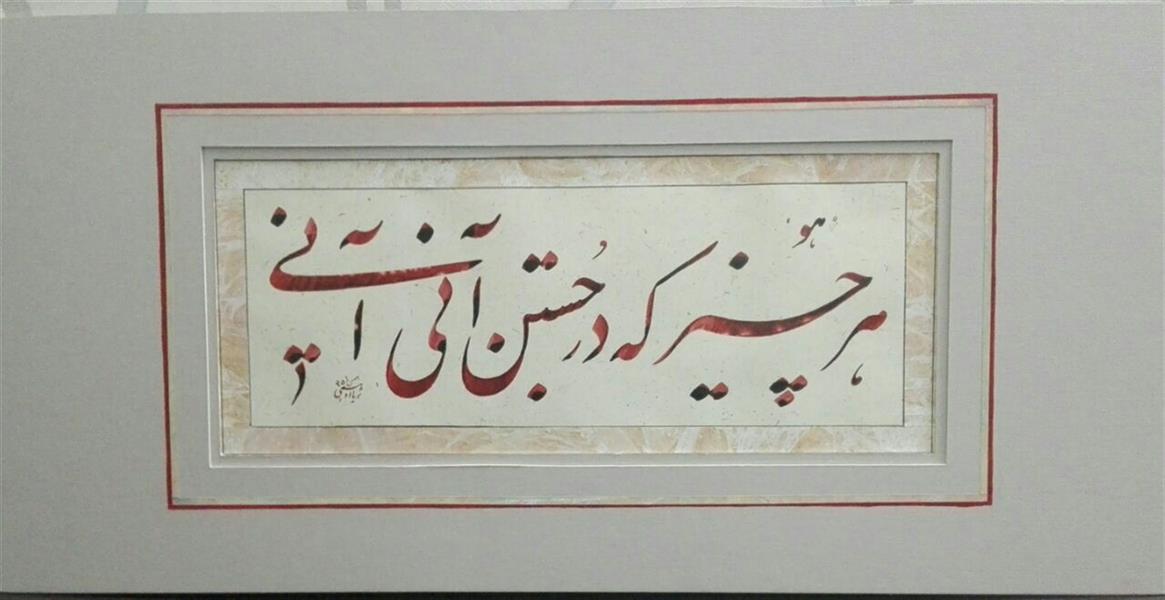 هو
هر چیز که در جُستن آنی آنی